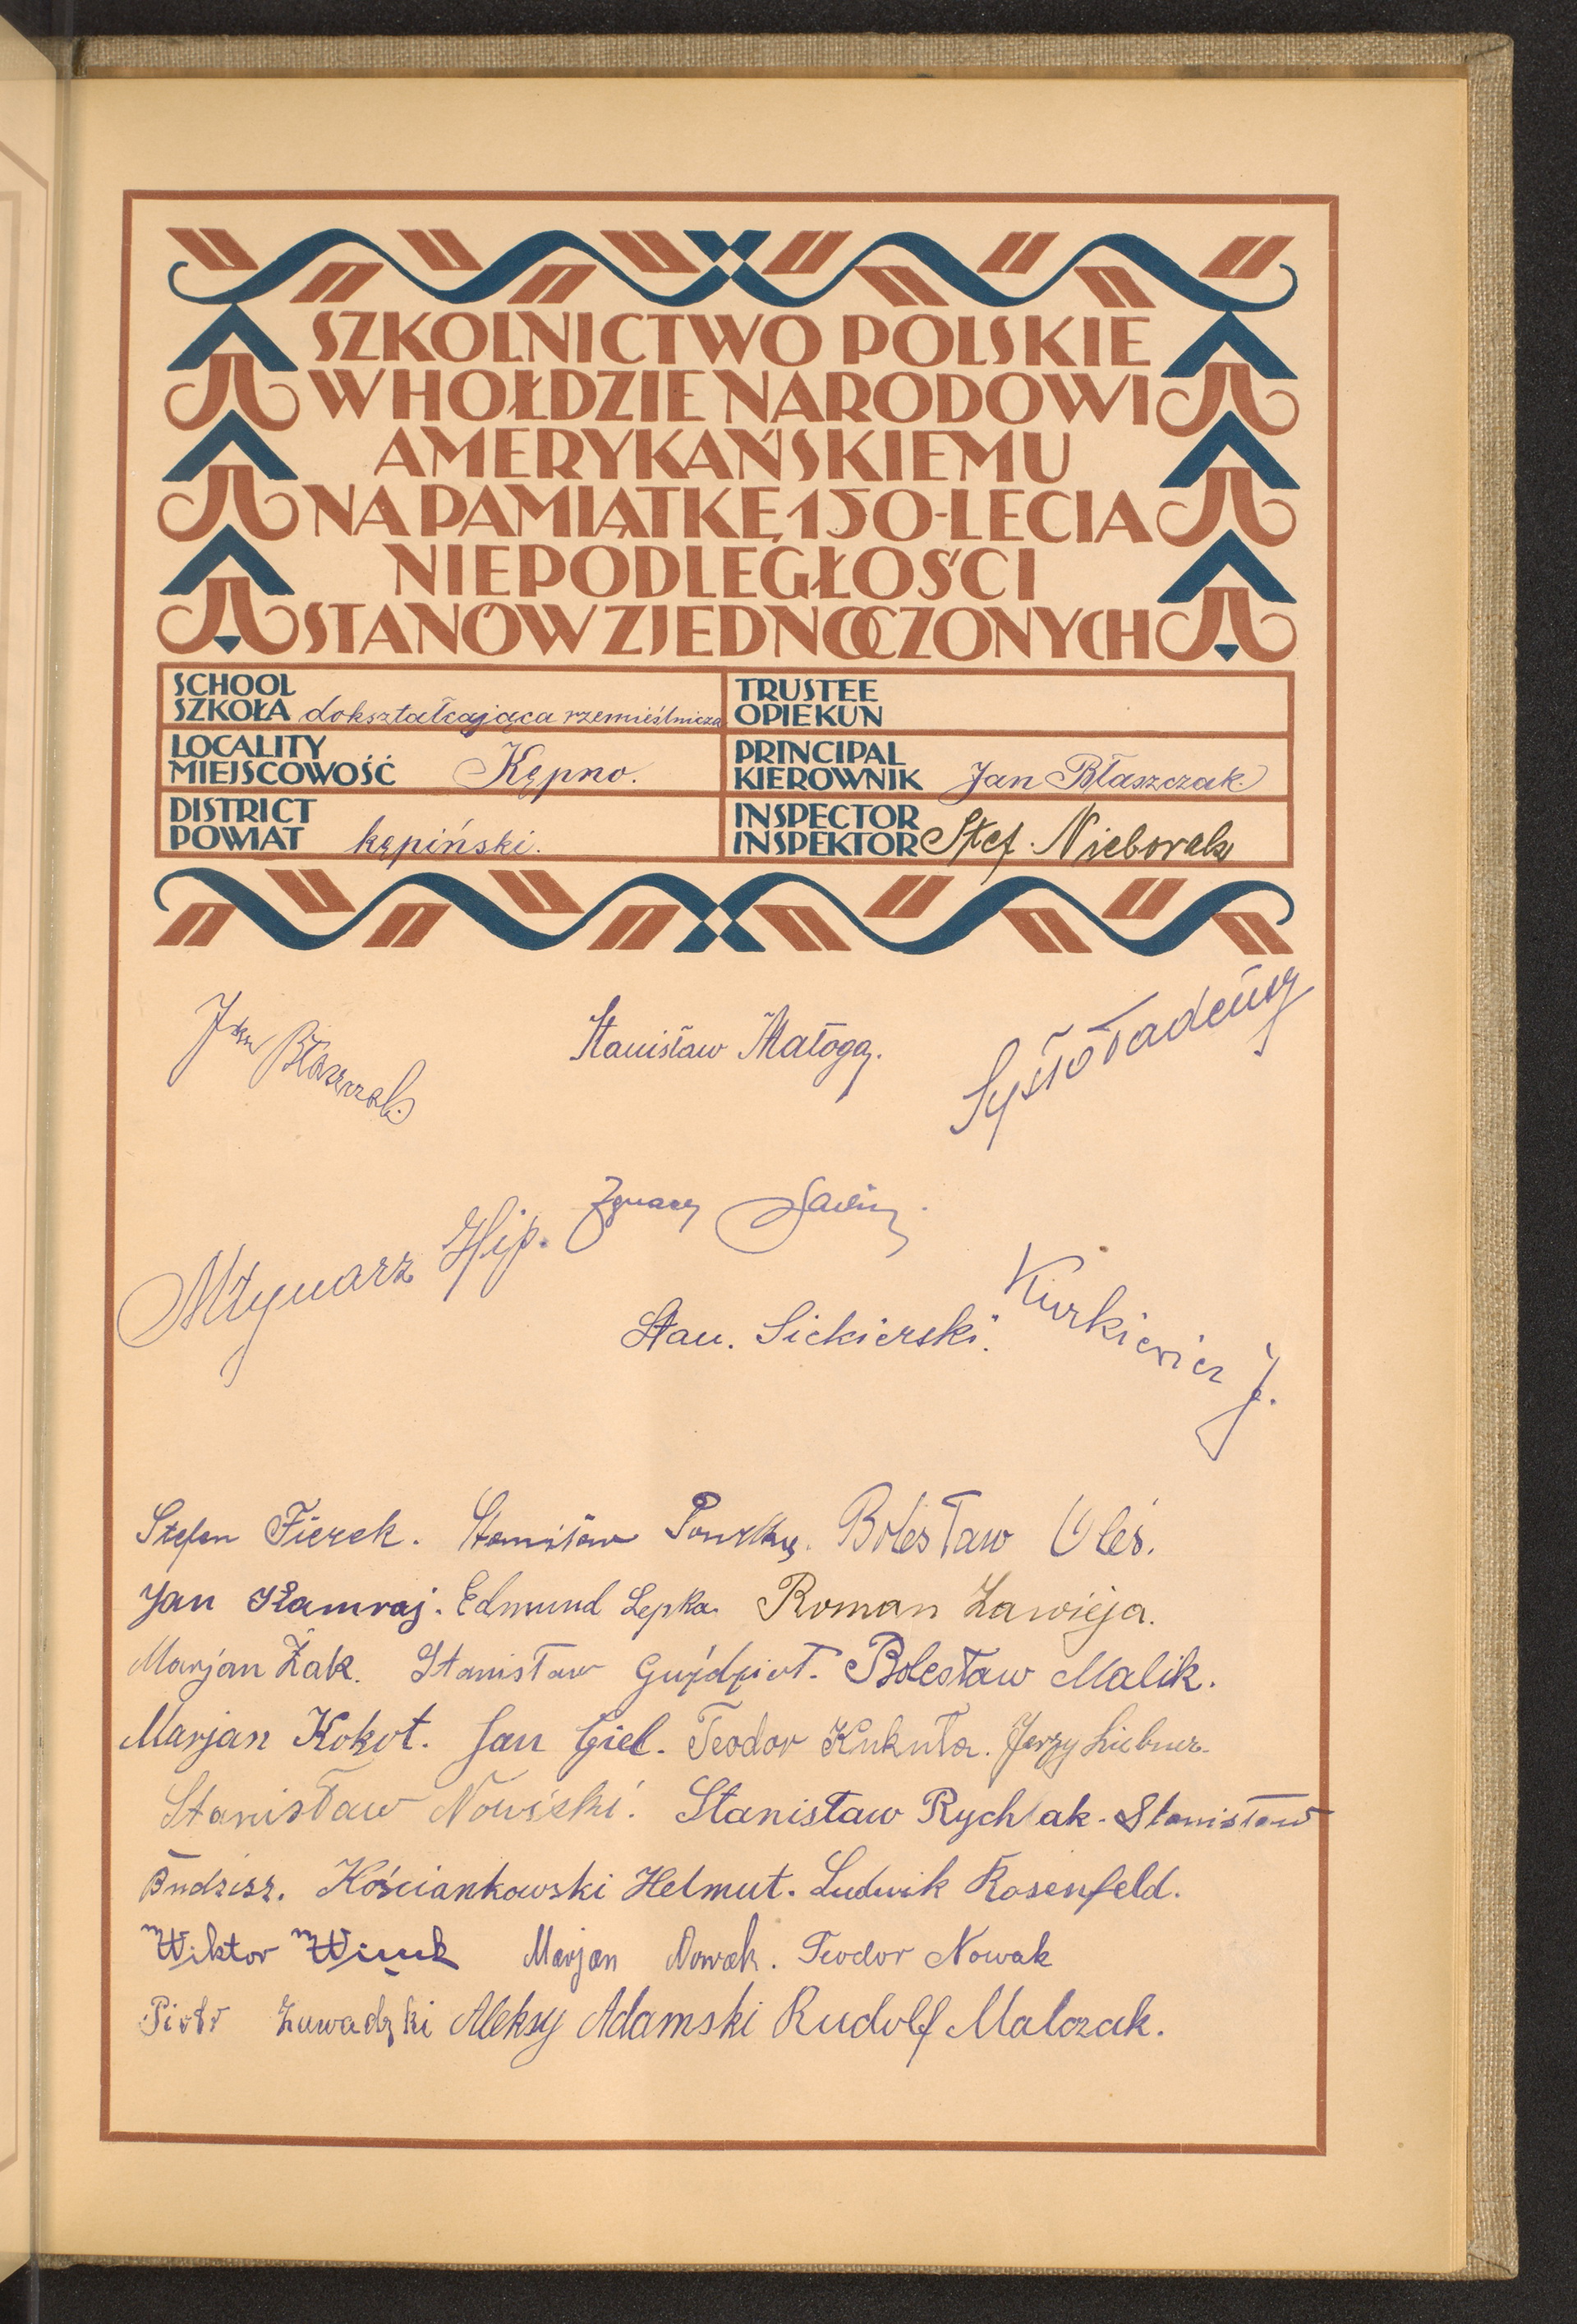 SZKOLNICTWO POLSKIE
W HOŁDZIE NARODOWI
AMERYKAŃSKIEMU
NA PAMIĄTKĘ 150-LECIA
NIEPODLEGŁOŚCI
STANÓW ZJEDNOCZONYCH
SCHOOL
SZKOŁA dokształcająca rzemieślnicza
TRUSTEE
OPIEKUN
LOCALITY
MIEJSCOWOŚĆ Kępno.
PRINCIPAL
KIEROWNIK Jan Błaszczak
DISTRICT
POWIAT kępiński.
INSPECTOR
INSPEKTOR Stef. Nieborak
Jan Błaszczak
Stanisław Małoga.
Tadeusz
Młynarz Hip.
Ignacy
Stan. Siekierski.
Kurkiewicz J.
Stefan Fierek. Stanisław Bolesław Oleś.
Jan Kłamraj. Edmund Lepka. Roman Zawieja.
Marjan Żak. Stanisław Guździoł. Bolesław Malik.
Marjan Kokot. Jan Giel. Teodor Kukuła. Jerzy Liebner.
Stanisław Nowiski. Stanisław Rychlak. Stanisław
Budzisz. Kościankowski Helmut. Ludwik Rosenfeld.
Wiktor Marjan Nowak. Teodor Nowak
Piotr Zawadzki Aleksy Adamski Rudolf Malczak.